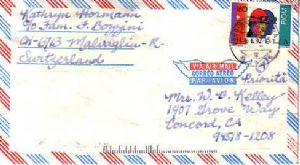 Kathryn Hormann
c/o Fam. F. Bonzini
CH-6713 Malvaglia-R.
Switzerland
VIA AIR MAIL
CORREO AEREO
PAR AVION
Mrs. W. D. Kelley
1907 Grove Way
Concord, CA
94518-1208